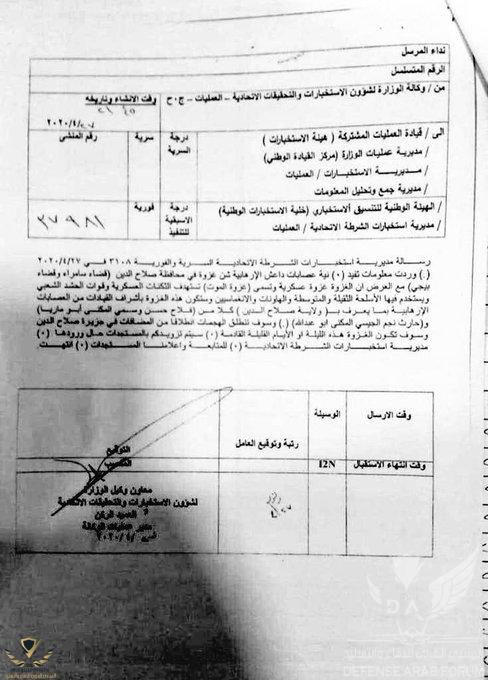 نداء المرسل
الرقم المتسلسل
من / وكالة الوزارة لشؤون الاستخبارات والتحقيقات الاتحادية – العمليات – ج.ح
وقت الانشاء وتاريخه
٢٠٢٠/٤/٢٧
الى / قيادة العمليات المشتركة ( هيئة الاستخبارات )
درجة السرية
سرية
رقم المنشئ
/ مديرية عمليات الوزارة (مركز القيادة الوطني)
/ مديرية الاستخبارات / العمليات
/ مديرية جمع وتحليل المعلومات
/ الهيئة الوطنية للتنسيق ألاستخباري (خلية الاستخبارات الوطنية)
درجة الاسبقية للتنفيذ
فورية
٣٧٩٨١
مديرية استخبارات الشرطة الاتحادية / العمليات
رسالة مديرية استخبارات الشرطة الاتحادية السرية والفورية ٣١٠٨ في ٢٠٢٠/٤/٢٧
(.) وردت معلومات تفيد (٠) نية عصابات داعش الإرهابية شن غزوة في محافظة صلاح الدين (قضاء سامراء وقضاء
بيجي) مع العرض ان الغزوة غزوة عسكرية وتسمى (غزوة الموت) تستهدف الثكنات العسكرية وقوات الحشد الشعبي
ويستخدم فيها الأسلحة الثقيلة والمتوسطة والهاونات والانغماسيين وستكون هذه الغزوة بأشراف القيادات من العصابات
الإرهابية بما يعرف بـ( ولاية صلاح الدين) كلا من (فلاح حسن وسمي المكنى أبو ماريا)
و(حارث نجم الجيسي المكنى ابو عبدالله) (.) وسوف تنطلق الهجمات انطلاقا من المضافات في جزيرة صلاح الدين
وسوف تكون الغزوة هذه الليلة او الأيام القليلة القادمة (٠) سيتم تزويدكم بالمستجدات حال ورودها (٠)
مديرية استخبارات الشرطة الاتحادية (٠) للمتابعة واعلامنا المستجدات (٠) انتهت
وقت الارسال
الوسيلة
رتبة وتوقيع العامل
التوقيع
المنصب
وقت انتهاء الاستقبال
I2N
معاون وكيل الوزارة
لشؤون الاستخبارات والتحقيقات الاتحادية
العميد الركن
مدير عمليات الوكالة
٢٠٢٠/٤/
DA
DEFENSE ARAB FORUM